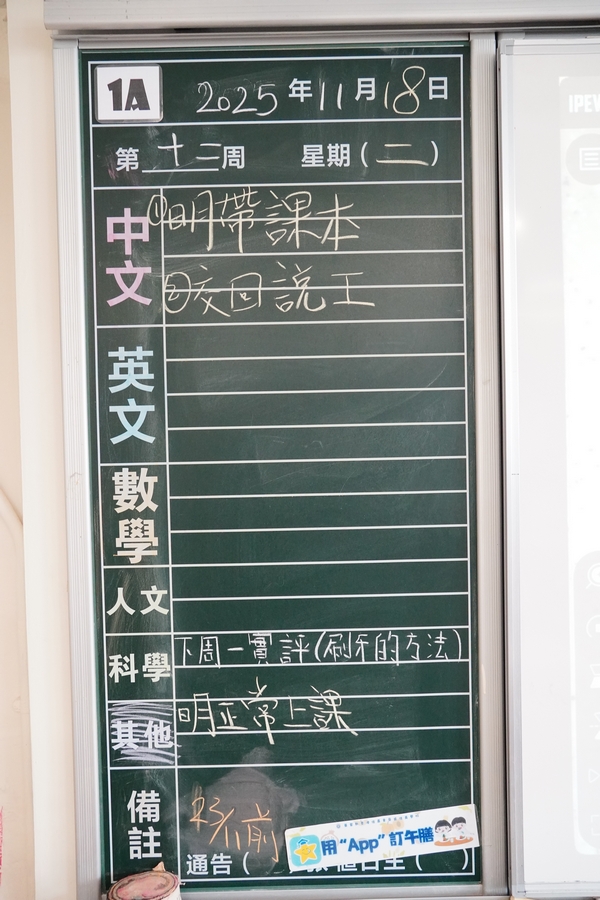 1A 2025年11月18日
第十二周 星期(二)
中文 ①明帶課本
②交回說工
英文
數學
人文
科學 下周一實評(刷牙的方法)
其他 明正常上課
備註 23/11前
用“App”訂午膳
通告(
IPEV